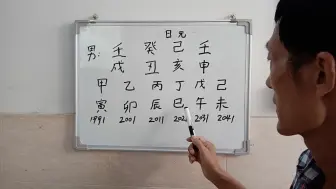 日元
男: 壬 癸 己 壬
戌 丑 亥 申
甲 乙 丙 丁 戊 己
寅 卯 辰 巳 午 未
1991 2001 2011 202 2031 2041